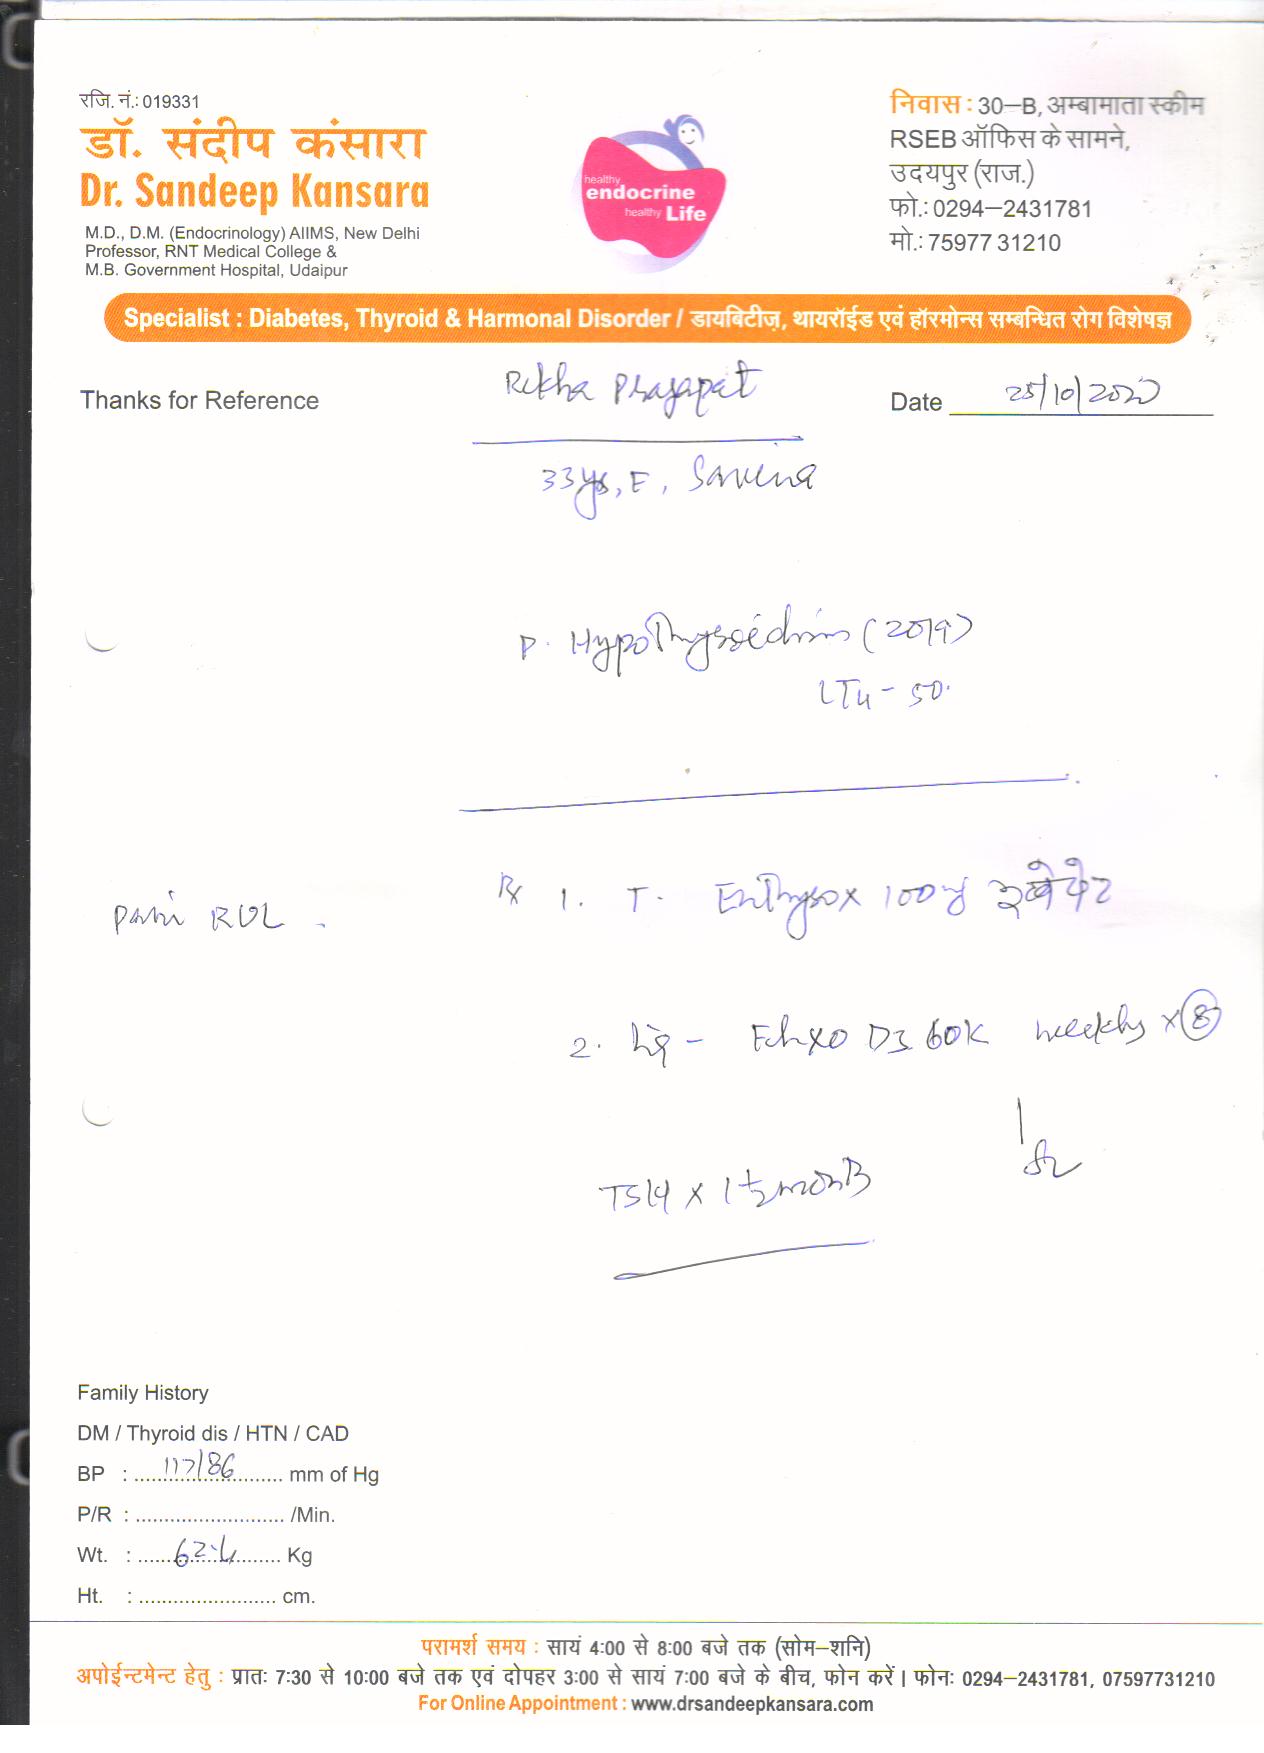 रजि. नं.: 019331
डॉ. संदीप कंसारा
Dr. Sandeep Kansara
M.D., D.M. (Endocrinology) AIIMS, New Delhi
Professor, RNT Medical College &
M.B. Government Hospital, Udaipur
healthy
endocrine
healthy Life
निवास : 30–B, अम्बामाता स्कीम
RSEB ऑफिस के सामने,
उदयपुर (राज.)
फो.: 0294–2431781
मो.: 75977 31210
Specialist : Diabetes, Thyroid & Harmonal Disorder / डायबिटीज़, थायरॉईड एवं हॉरमोन्स सम्बन्धित रोग विशेषज्ञ
Thanks for Reference
Rekha Prajapat
Date 25/10/2020
33 yrs, F, Savina
P. Hypothyroidism (2019)
LT4 - 50.
Rx 1. T. Enthyrox 100
Pain RUL
2. D3 60K weekly x 8
TSH x 1 ½ month
Family History
DM / Thyroid dis / HTN / CAD
BP : 117/86 mm of Hg
P/R : ......................... /Min.
Wt. : 62.4 Kg
Ht. : ........................ cm.
परामर्श समय : सायं 4:00 से 8:00 बजे तक (सोम–शनि)
अपोईन्टमेन्ट हेतु : प्रातः 7:30 से 10:00 बजे तक एवं दोपहर 3:00 से सायं 7:00 बजे के बीच, फोन करें। फोनः 0294–2431781, 07597731210
For Online Appointment : www.drsandeepkansara.com